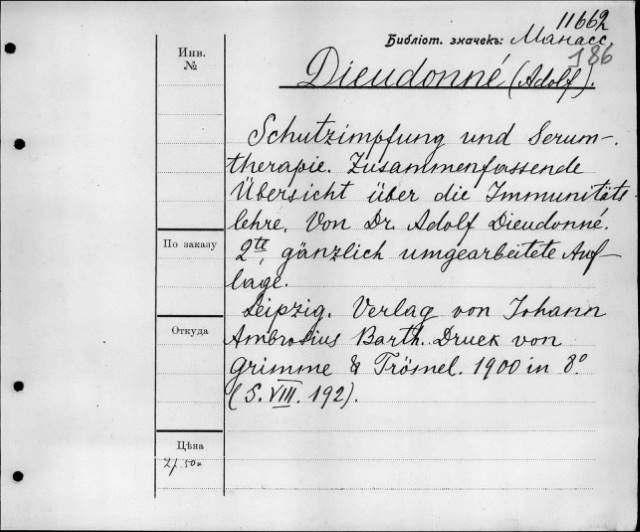 11662
Библіот. значекъ: Манасс.
186
Инв.
№
Dieudonné (Adolf).
Schutzimpfung und Serum-
therapie. Zusammenfassende
Übersicht über die Immunitäts
lehre. Von Dr. Adolf Dieudonné.
По заказу
2te, gänzlich umgearbeitete Auf-
lage.
Leipzig. Verlag von Johann
Откуда
Ambrosius Barth. Druck von
Grimme & Trömel. 1900 in 8°.
(S. VIII. 192).
Цѣна